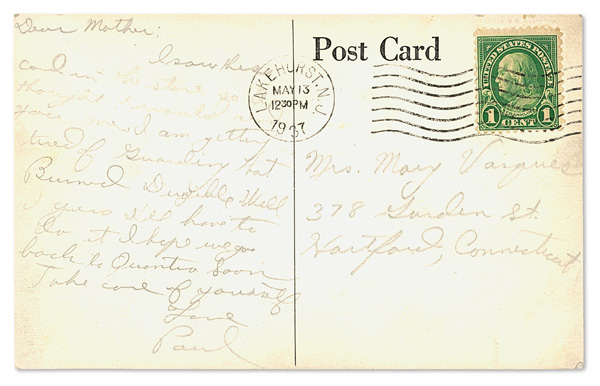 Dear Mother:
I saw this
card in the store so
thought I would
you one. I am getting
tired of Guarding that
Burned Dirigible. Well
I guess I'll have to
do it I hope we go
back to Quantico Soon
Take care of yourself
Love
Paul
Post Card
LAKEHURST, N.J.
MAY 13
1230 PM
1937
UNITED STATES POSTAGE
1 CENT 1
Mrs. Mary
378 Garden St.
Hartford, Connecticut